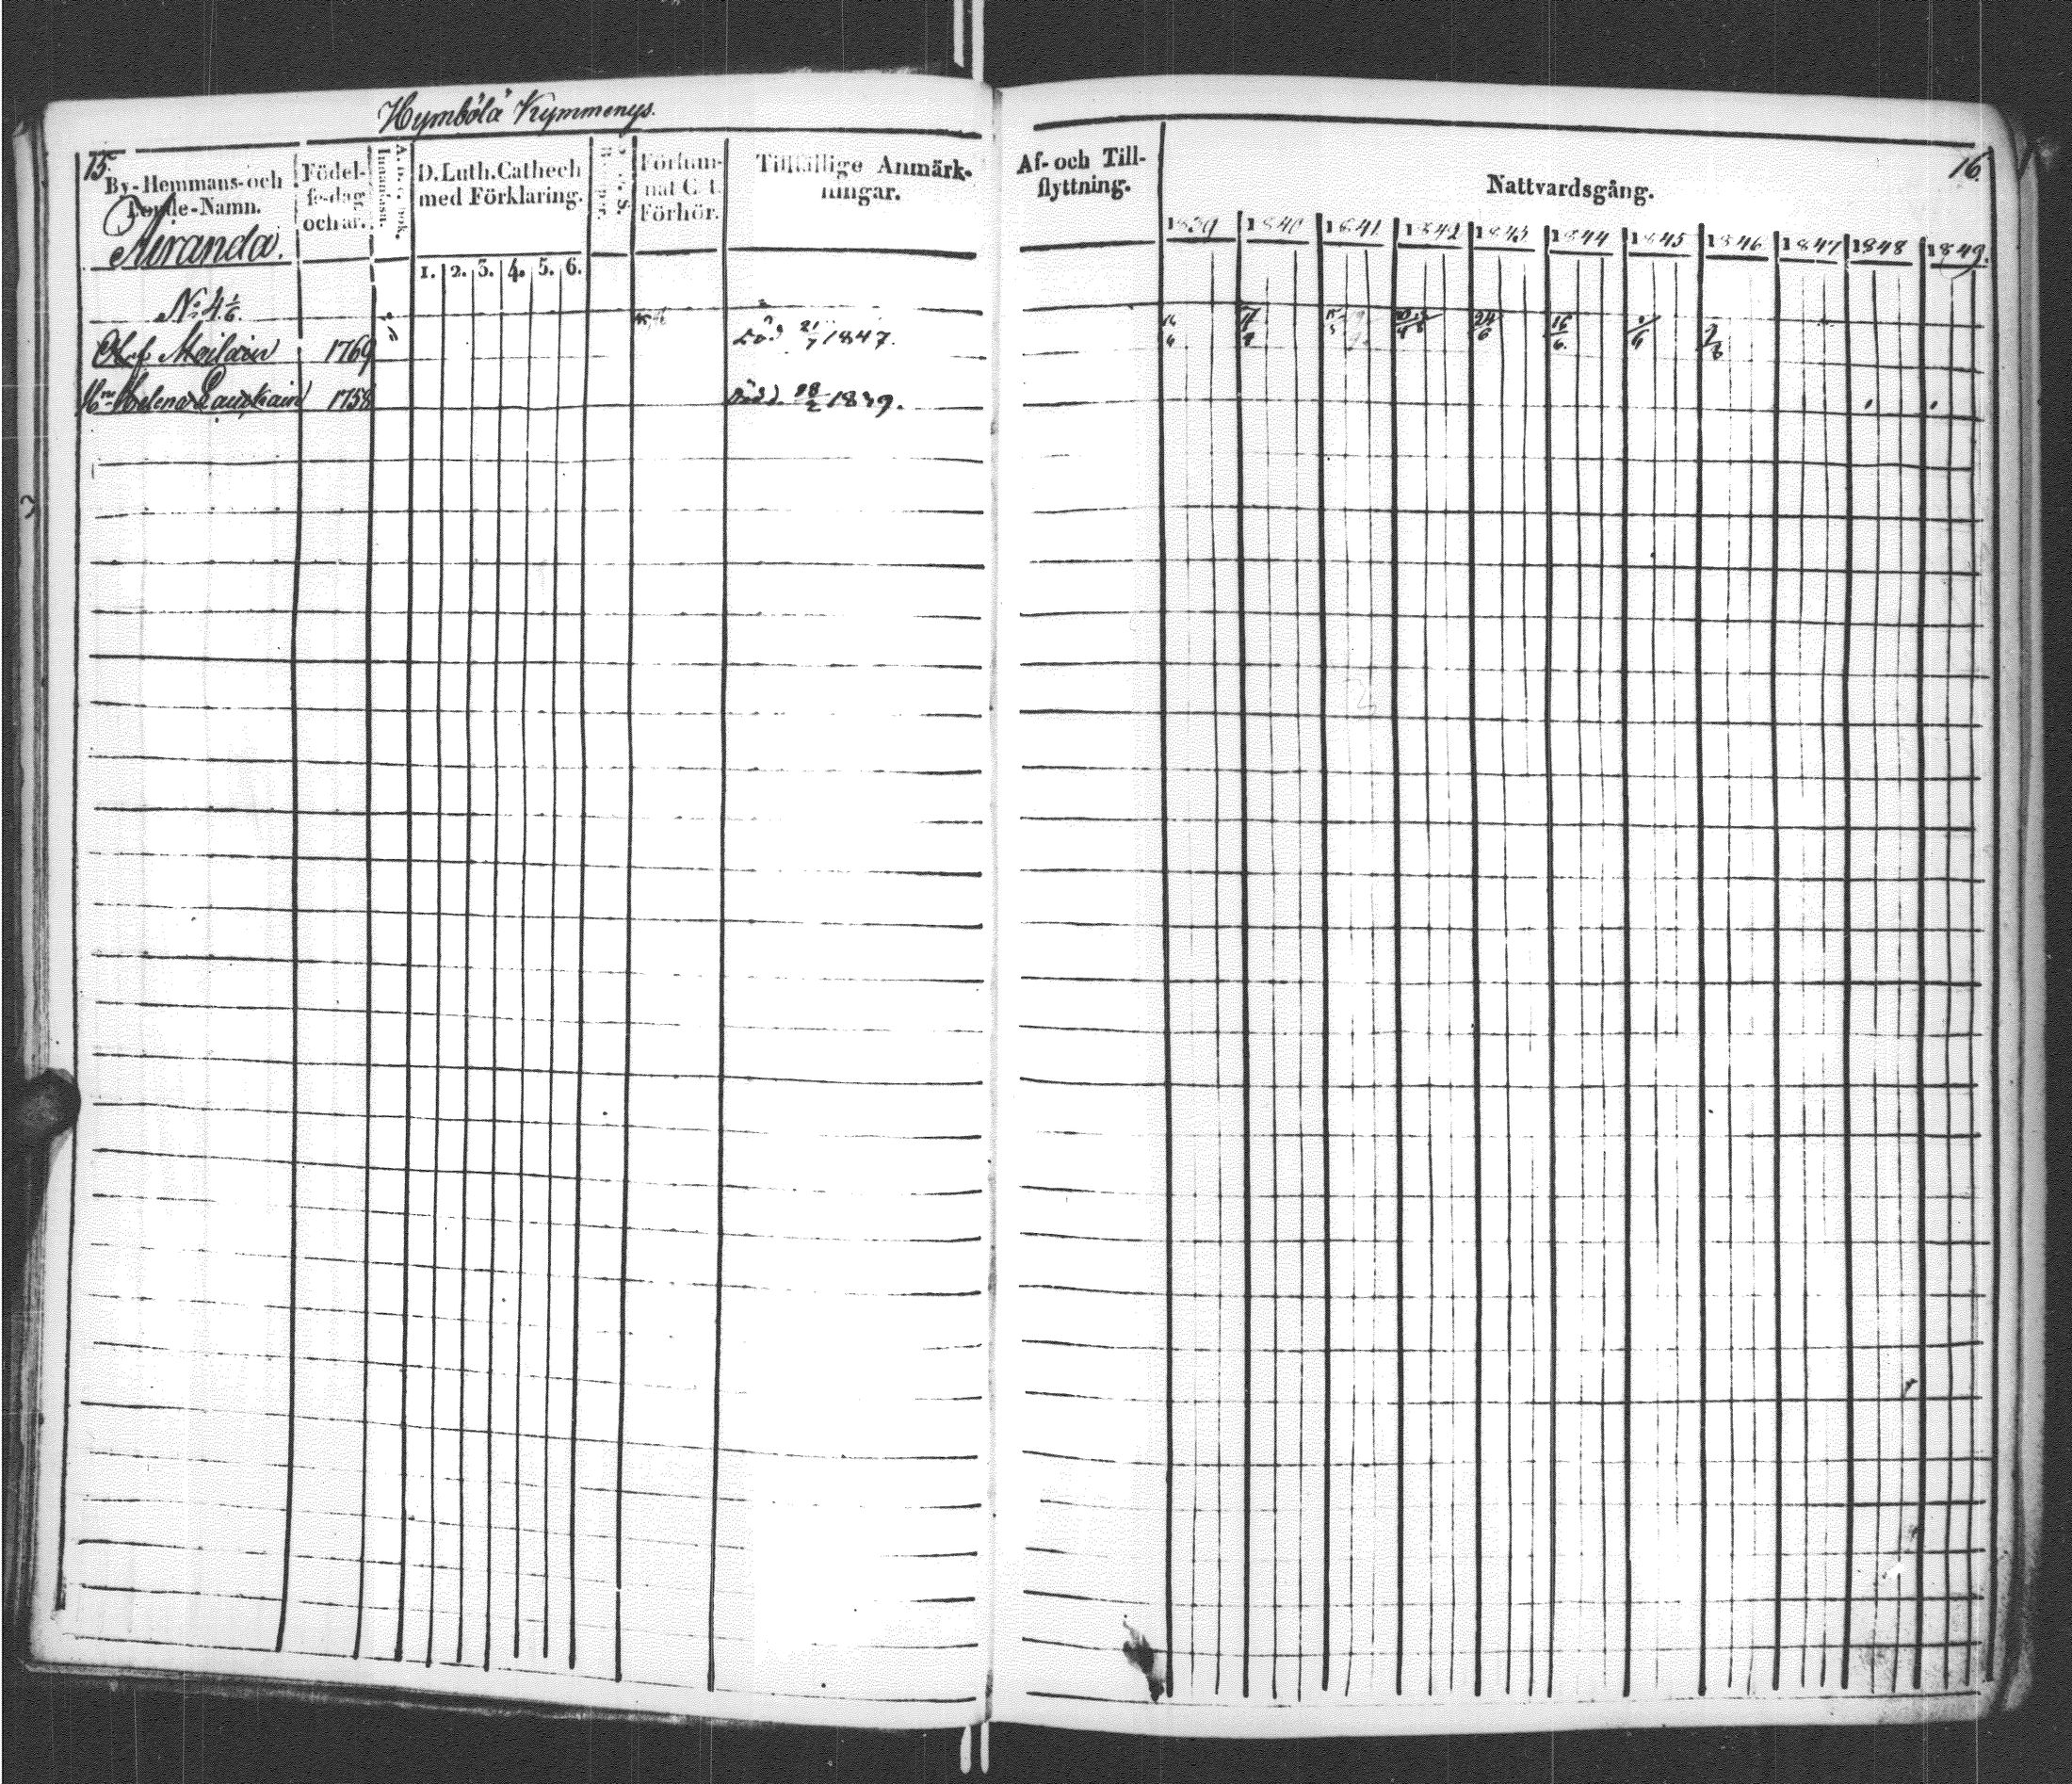 Hymbölä Kymmenys.
15.
By-Hemmans-och
Torpare-Namn.
Miranda.
Födel-
sedag
och år.
A. b. c. bok.
Innantill.
D. Luth. Cathech
med Förklaring.
1. 2. 3. 4. 5. 6.
S.
Försum-
nat C. t.
Förhör.
Tillfällige Anmärk-
ningar.
No 4 1/6.
Olof Moilain 1769 Död 21/7 1847.
Hu Helena Laukain 1758 Död 28/2 1839.
16.
Af- och Till-
flyttning.
Nattvardsgång.
1839 1840 1841 1842 1843 1844 1845 1846 1847 1848 1849.
16/6 24/6 16/6